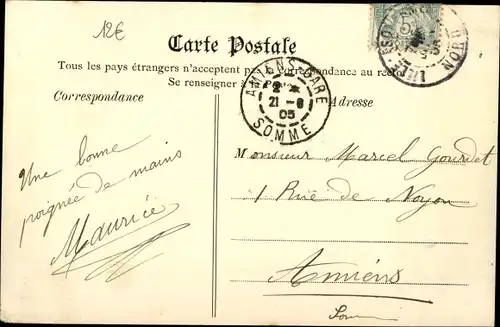 12€
Carte Postale
Tous les pays étrangers n'acceptent pas la correspondance au recto
Se renseigner à
Correspondance
Adresse
AMIENS GARE
2
21-8
05
SOMME
NORD
LILLE
5
Une bonne
poignée de mains
Maurice
Monsieur Marcel Gourdet
1 Rue de Noyon
Amiens
Somme